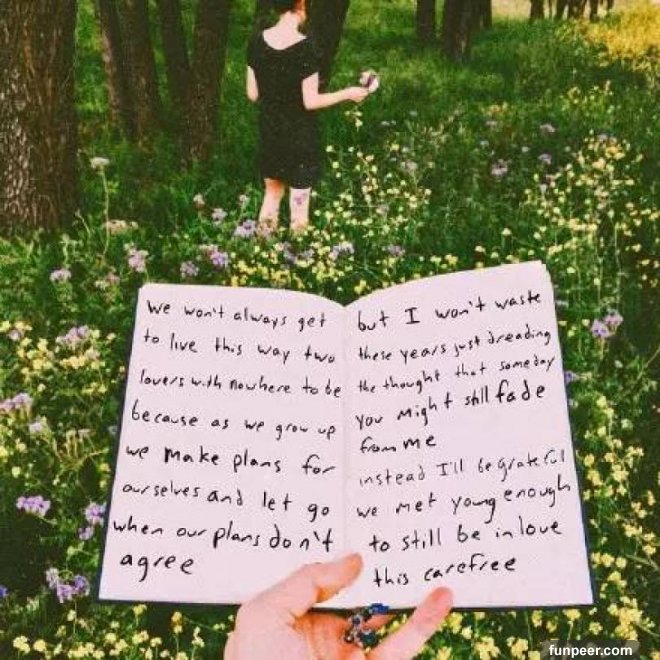 we won't always get
to live this way two
lovers with nowhere to be
because as we grow up
we make plans for
ourselves and let go
when our plans don't
agree
but I won't waste
these years just dreading
the thought that someday
you might still fade
from me
instead I'll be grateful
we met young enough
to still be in love
this carefree
funpeer.com